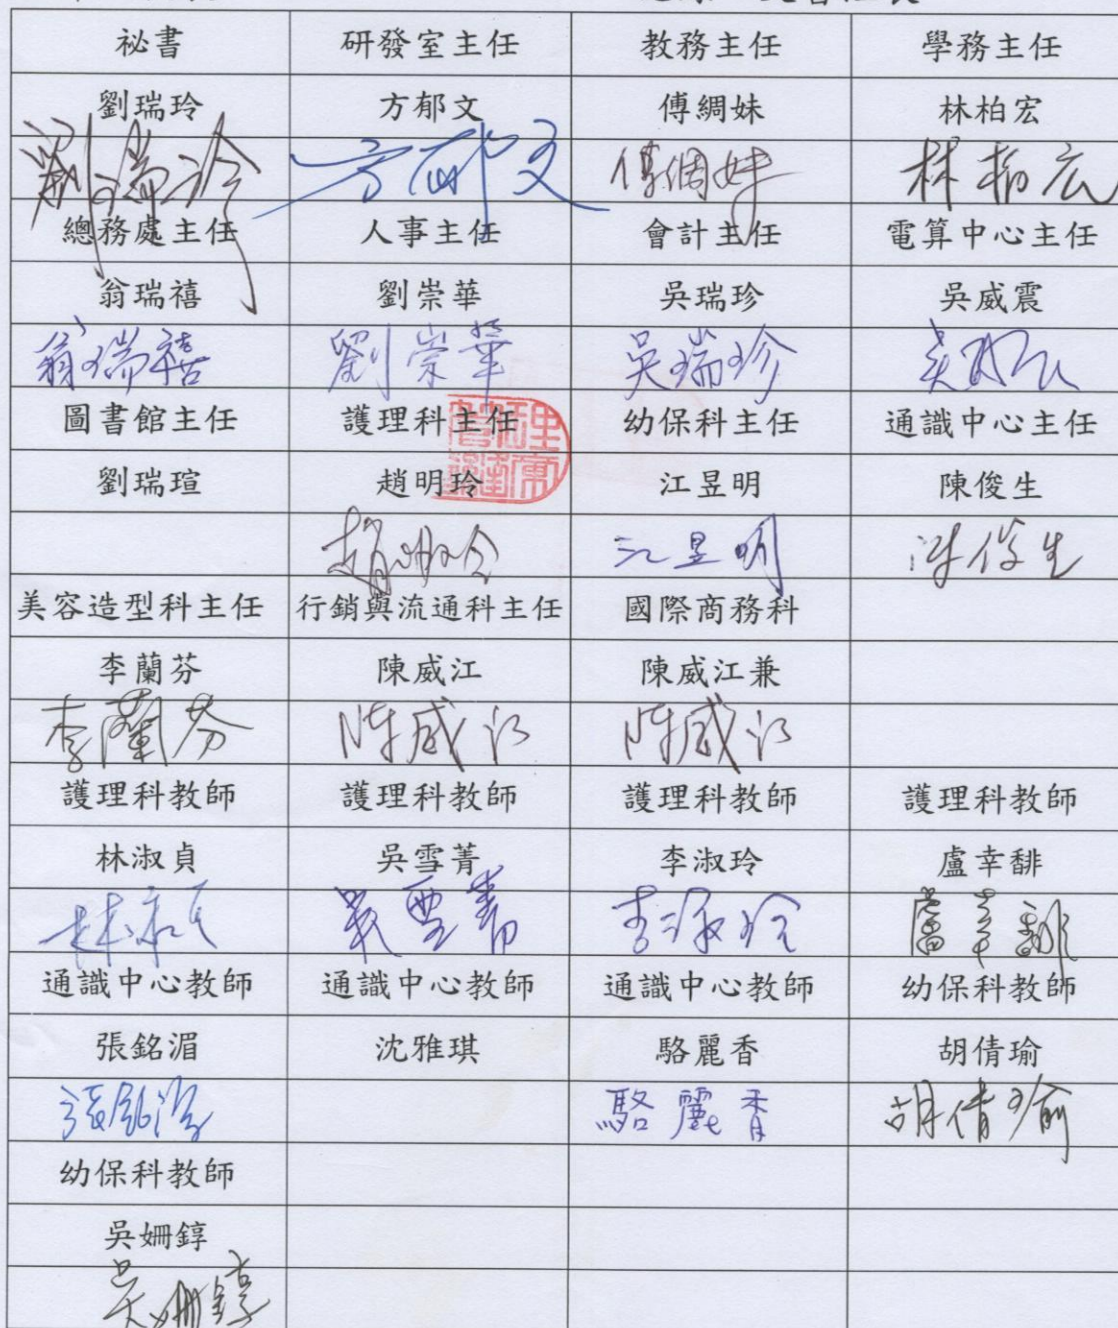 祕書 研發室主任 教務主任 學務主任
劉瑞玲 方郁文 傅綢妹 林柏宏
劉瑞玲 方郁文 傅綢妹 林柏宏
總務處主任 人事主任 會計主任 電算中心主任
翁瑞禧 劉崇華 吳瑞珍 吳威震
翁瑞禧 劉崇華 吳瑞珍
圖書館主任 護理科主任 幼保科主任 通識中心主任
劉瑞瑄 趙明玲 江昱明 陳俊生
趙明玲 江昱明 陳俊生
美容造型科主任 行銷與流通科主任 國際商務科
李蘭芬 陳威江 陳威江兼
李蘭芬 陳威江 陳威江
護理科教師 護理科教師 護理科教師 護理科教師
林淑貞 吳雪菁 李淑玲 盧幸馡
林淑貞 吳雪菁 李淑玲 盧幸馡
通識中心教師 通識中心教師 通識中心教師 幼保科教師
張銘湄 沈雅琪 駱麗香 胡倩瑜
張銘湄 駱麗香 胡倩瑜
幼保科教師
吳姍錞
吳姍錞